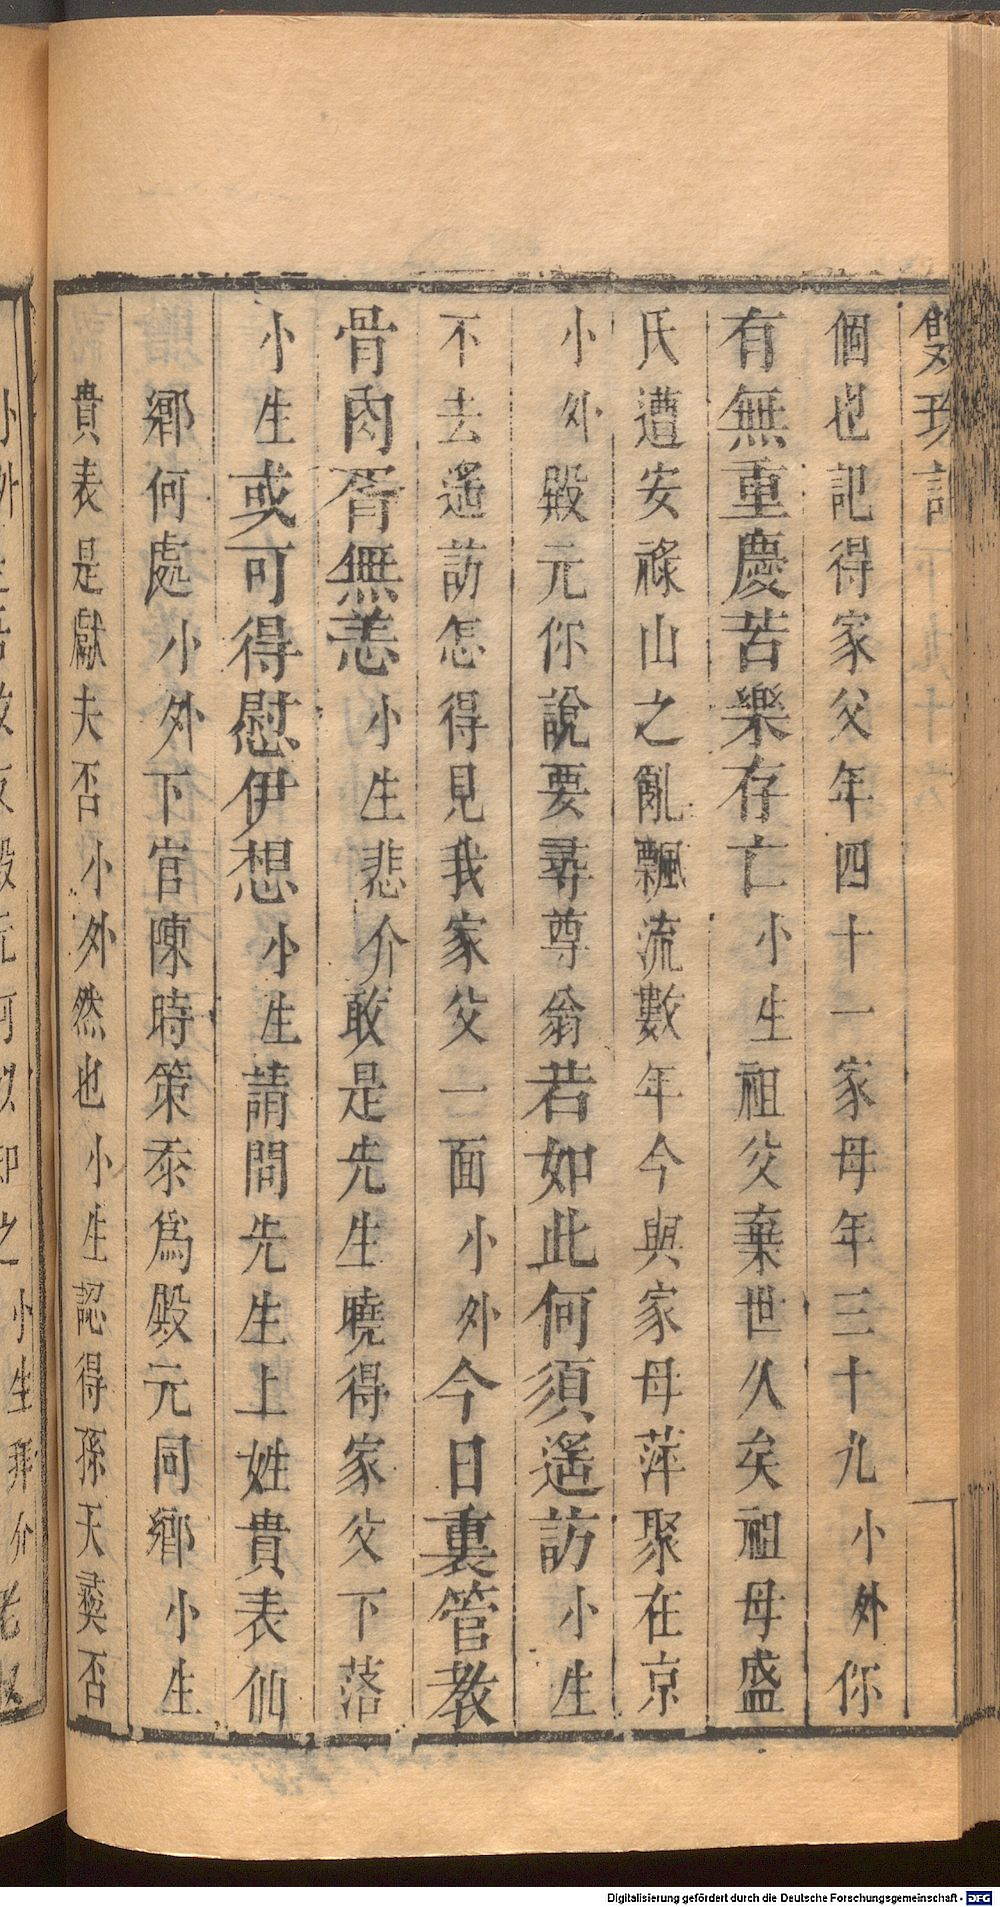 雙珠記
個也記得家父年四十一家母年三十九小外你
有無重慶苦樂存亡小生祖父棄世久矣祖母盛
氏遭安祿山之亂飄流數年今與家母萍聚在京
小外殿元你說要尋尊翁若如此何須遙訪小生
不去遙訪怎得見我家父一面小外今日裏管教
骨肉胥無恙小生悲介敢是先生曉得家父下落
小生或可得慰伊想小生請問先生上姓貴表仙
鄉何處小外下官陳時策忝為殿元同鄉小生
貴表是獻夫否小外然也小生認得孫天彝否
Digitalisierung gefördert durch die Deutsche Forschungsgemeinschaft - DFG